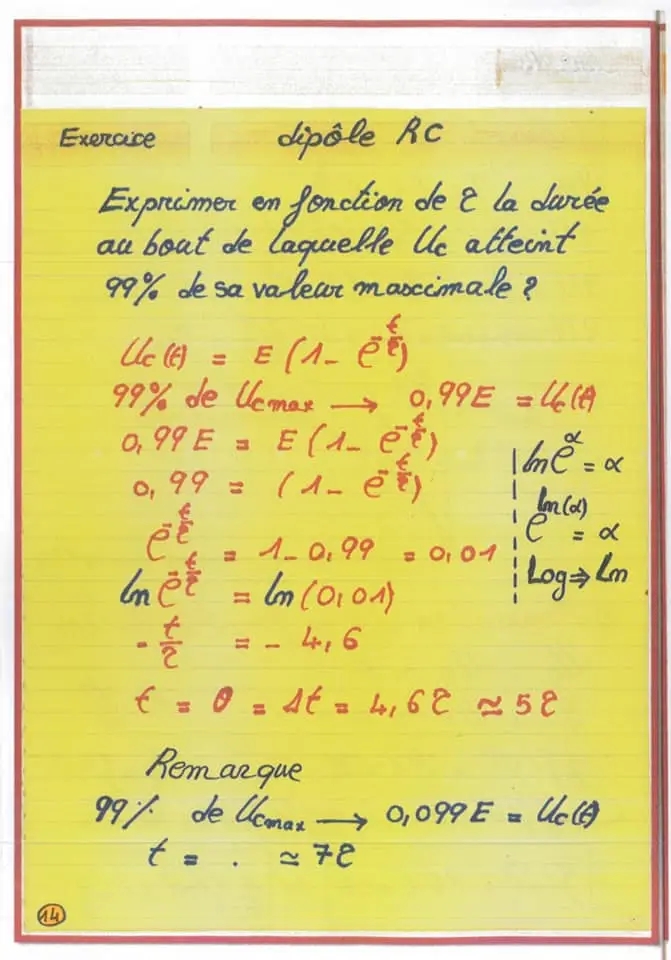 Exercice dipôle RC
Exprimer en fonction de τ la durée
au bout de laquelle Uc atteint
99% de sa valeur maximale ?
Uc(t) = E (1- e^(-t/τ))
99% de Ucmax → 0,99E = Uc(t)
0,99E = E (1- e^(-t/τ))
0,99 = (1- e^(-t/τ))
e^(-t/τ) = 1-0,99 = 0,01
ln e^(-t/τ) = ln(0,01)
- t/τ = - 4,6
t = θ = Δt = 4,6τ ≃ 5τ
ln e^α = α
e^ln(α) = α
Log ⇒ Ln
Remarque
99% de Ucmax → 0,099E = Uc(t)
t = . ≃ 7τ
14